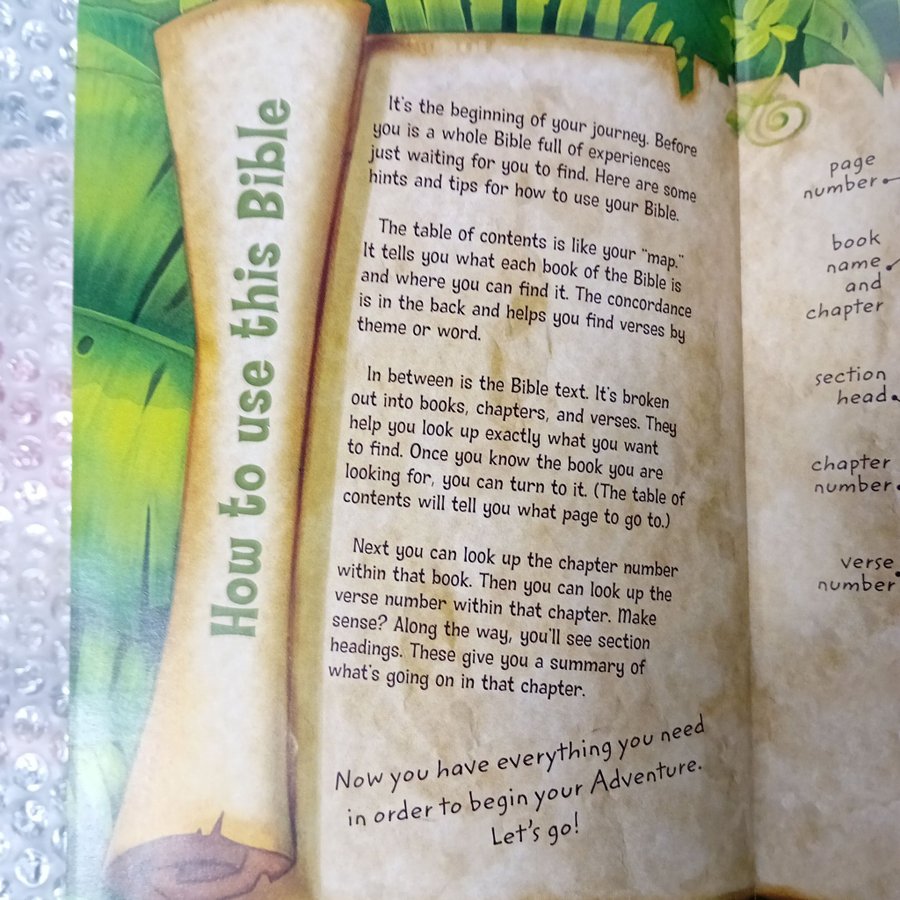 How to use this Bible
It's the beginning of your journey. Before
you is a whole Bible full of experiences
just waiting for you to find. Here are some
hints and tips for how to use your Bible.
The table of contents is like your "map."
It tells you what each book of the Bible is
and where you can find it. The concordance
is in the back and helps you find verses by
theme or word.
In between is the Bible text. It's broken
out into books, chapters, and verses. They
help you look up exactly what you want
to find. Once you know the book you are
looking for, you can turn to it. (The table of
contents will tell you what page to go to.)
Next you can look up the chapter number
within that book. Then you can look up the
verse number within that chapter. Make
sense? Along the way, you'll see section
headings. These give you a summary of
what's going on in that chapter.
Now you have everything you need
in order to begin your Adventure.
Let's go!
page
number
book
name
and
chapter
section
head
chapter
number
verse
number